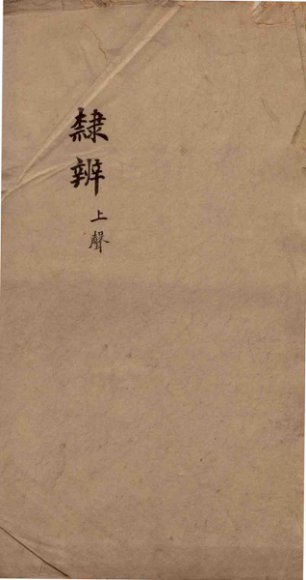 隸辨
上聲